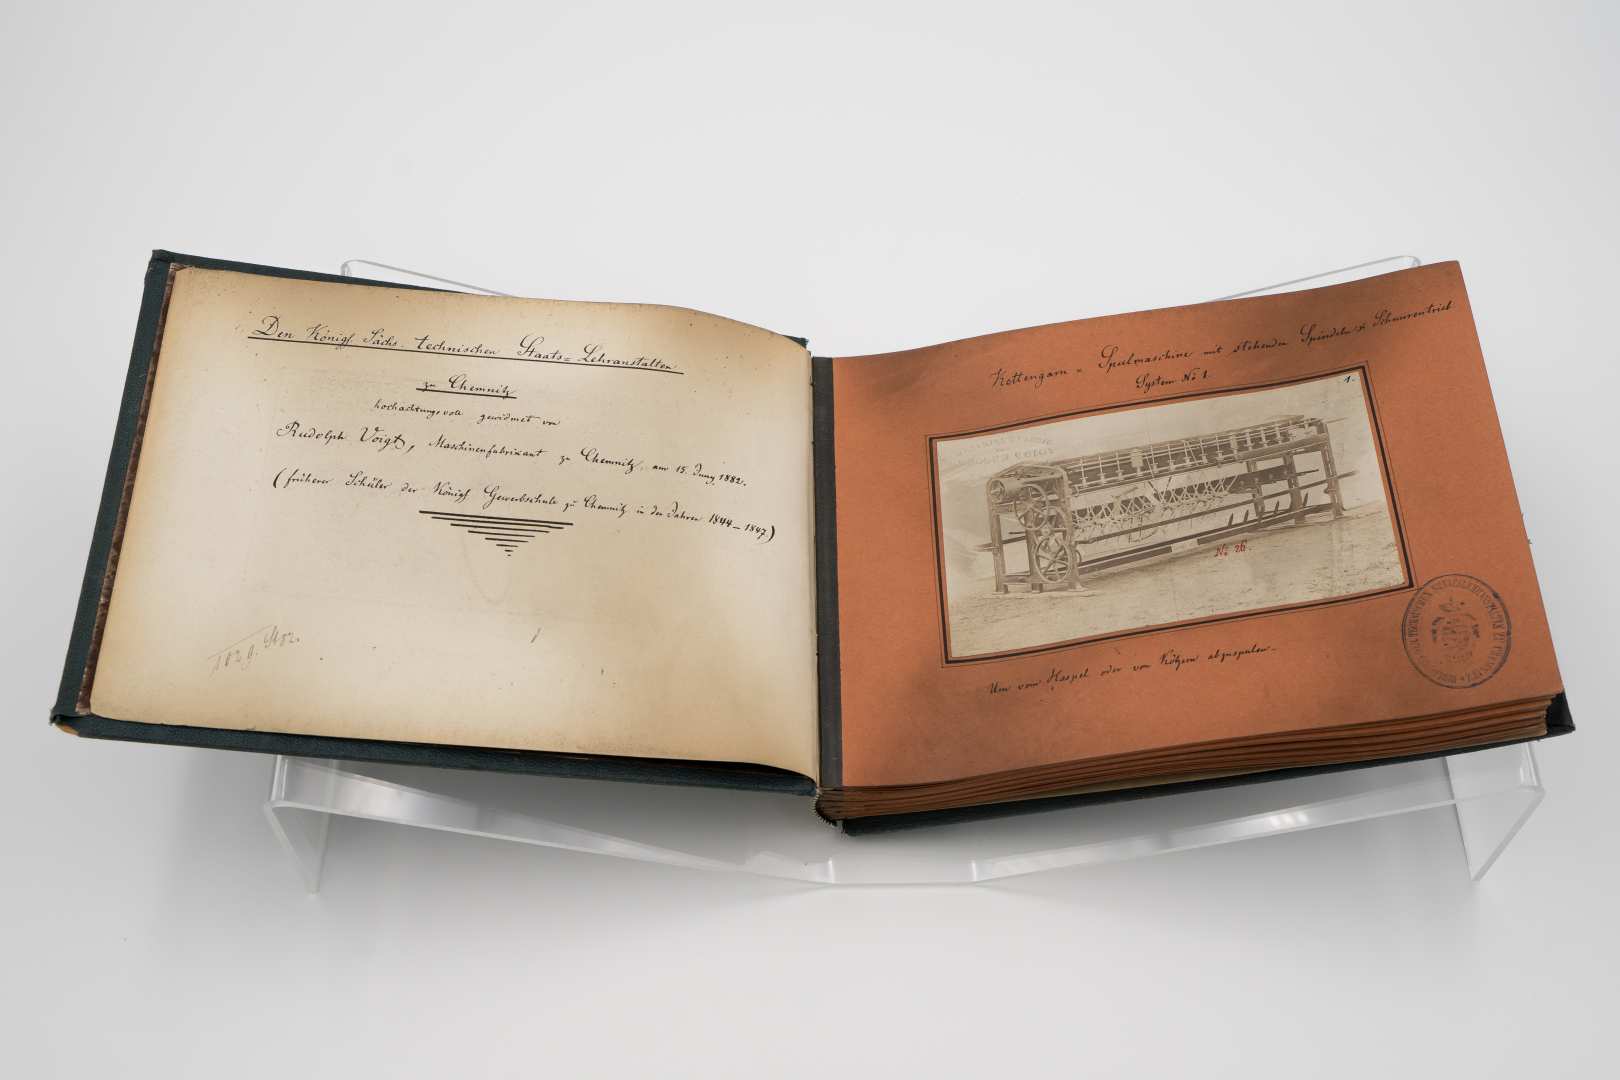 Den Königl. Sächs. technischen Staats= Lehranstalten
zu Chemnitz
hochachtungsvoll gewidmet von
Rudolph Voigt, Maschinenfabrikant zu Chemnitz, am 15. Juny 1882.
(früherer Schüler der Königl Gewerbschule zu Chemnitz in den Jahren 1844–1847.)
Kettengarn= Spulmaschine mit stehenden Spindeln & Schnurentrieb
System No 1.
1.
No 26.
Um vom Haspel oder von Kötzern abzuspulen.